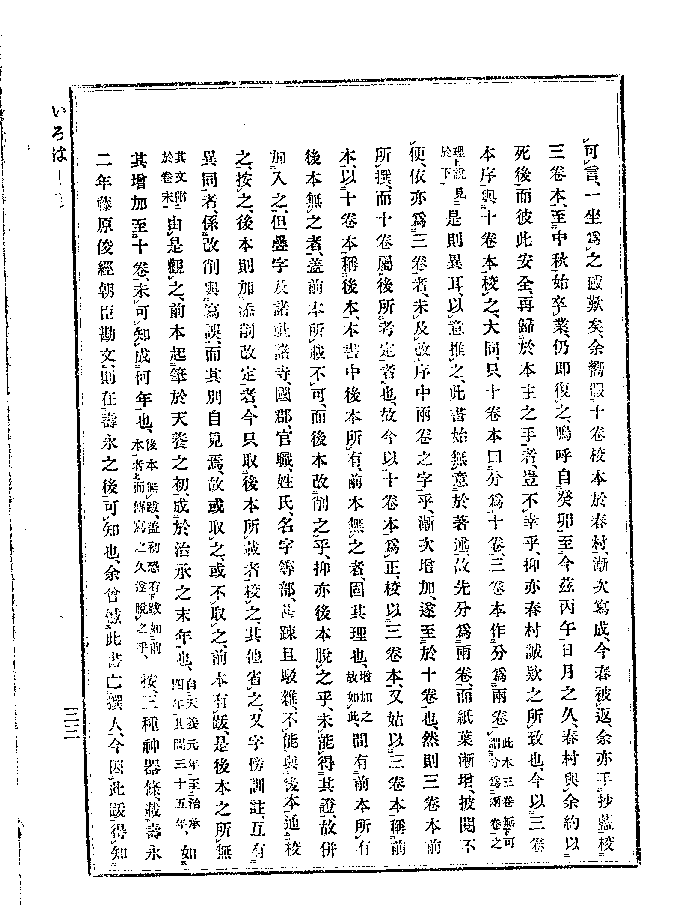 可言、一坐爲之破歎矣、余嚮假十卷校本於春村、漸次寫成、今春被返、余亦手抄藍校
三卷本、至中秋始卒業、仍卽復之、嗚呼自癸卯至今茲丙午、日月之久、春村與余約以
死後而彼此安全、再歸於本主之手者、豈不幸乎、抑亦春村誠歎之所致也、今以三卷
本序與十卷本校之、大同、只十卷本曰分爲十卷、三卷本作分爲兩卷、此本三卷無可謂分爲兩卷之
理上說見於下是則異耳、以意推之、此書始無意於著述、故先分爲兩卷、而紙葉漸增、披閱不
便、依亦爲三卷者、未及改序中兩卷之字乎、漸次增加、遂至於十卷也、然則三卷本前
所撰、而十卷屬後所考定者也、故今以十卷本爲正、校以三卷本、又姑以三卷本稱前
本、以十卷本稱後本、本書中後本所有、前本無之者、固其理也、增加之故如此、間有前本所有
後本無之者、蓋前本所載不可、而後本改削之乎、抑亦後本脫之乎、未能得其證、故併
加入之、但疊字及諸社諸寺、國郡、官職、姓氏、名字等部、甚踈且駁雜、不能與後本通校
之、按之、後本則加添削改定者、今只取後本所載者校之、其他省之、又字傍訓註、互有
異同者、係改削與寫誤、而其別自見焉、故或取之、或不取之、前本有跋、是後本之所無
其文附於卷末、由是觀之、前本起筆於天養之初、成於治承之末年也、自天養元年至治承四年其間三十五年、如
其增加至十卷、未可知成何年也、後本無跋、蓋初恐有跋如前本者、而傳寫之久遂脫之乎、按、三種神器條、載壽永
二年藤原俊經朝臣勘文、則在壽永之後可知也、余曾憾此書亡撰人、今因此跋得知
いろは
三三